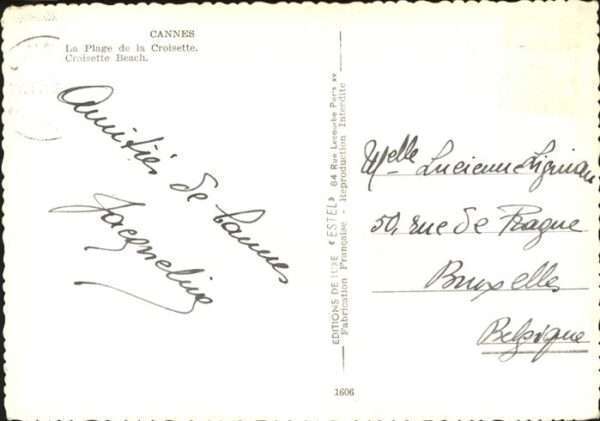 CANNES
La Plage de la Croisette.
Croisette Beach.
Amitiés de Cannes
Jacqueline
EDITIONS DE LUXE "ESTEL" 84 Rue Lecourbe Paris XV
Fabrication Française - Reproduction Interdite
Melle
50, rue de Prague
Bruxelles
Belgique
1606